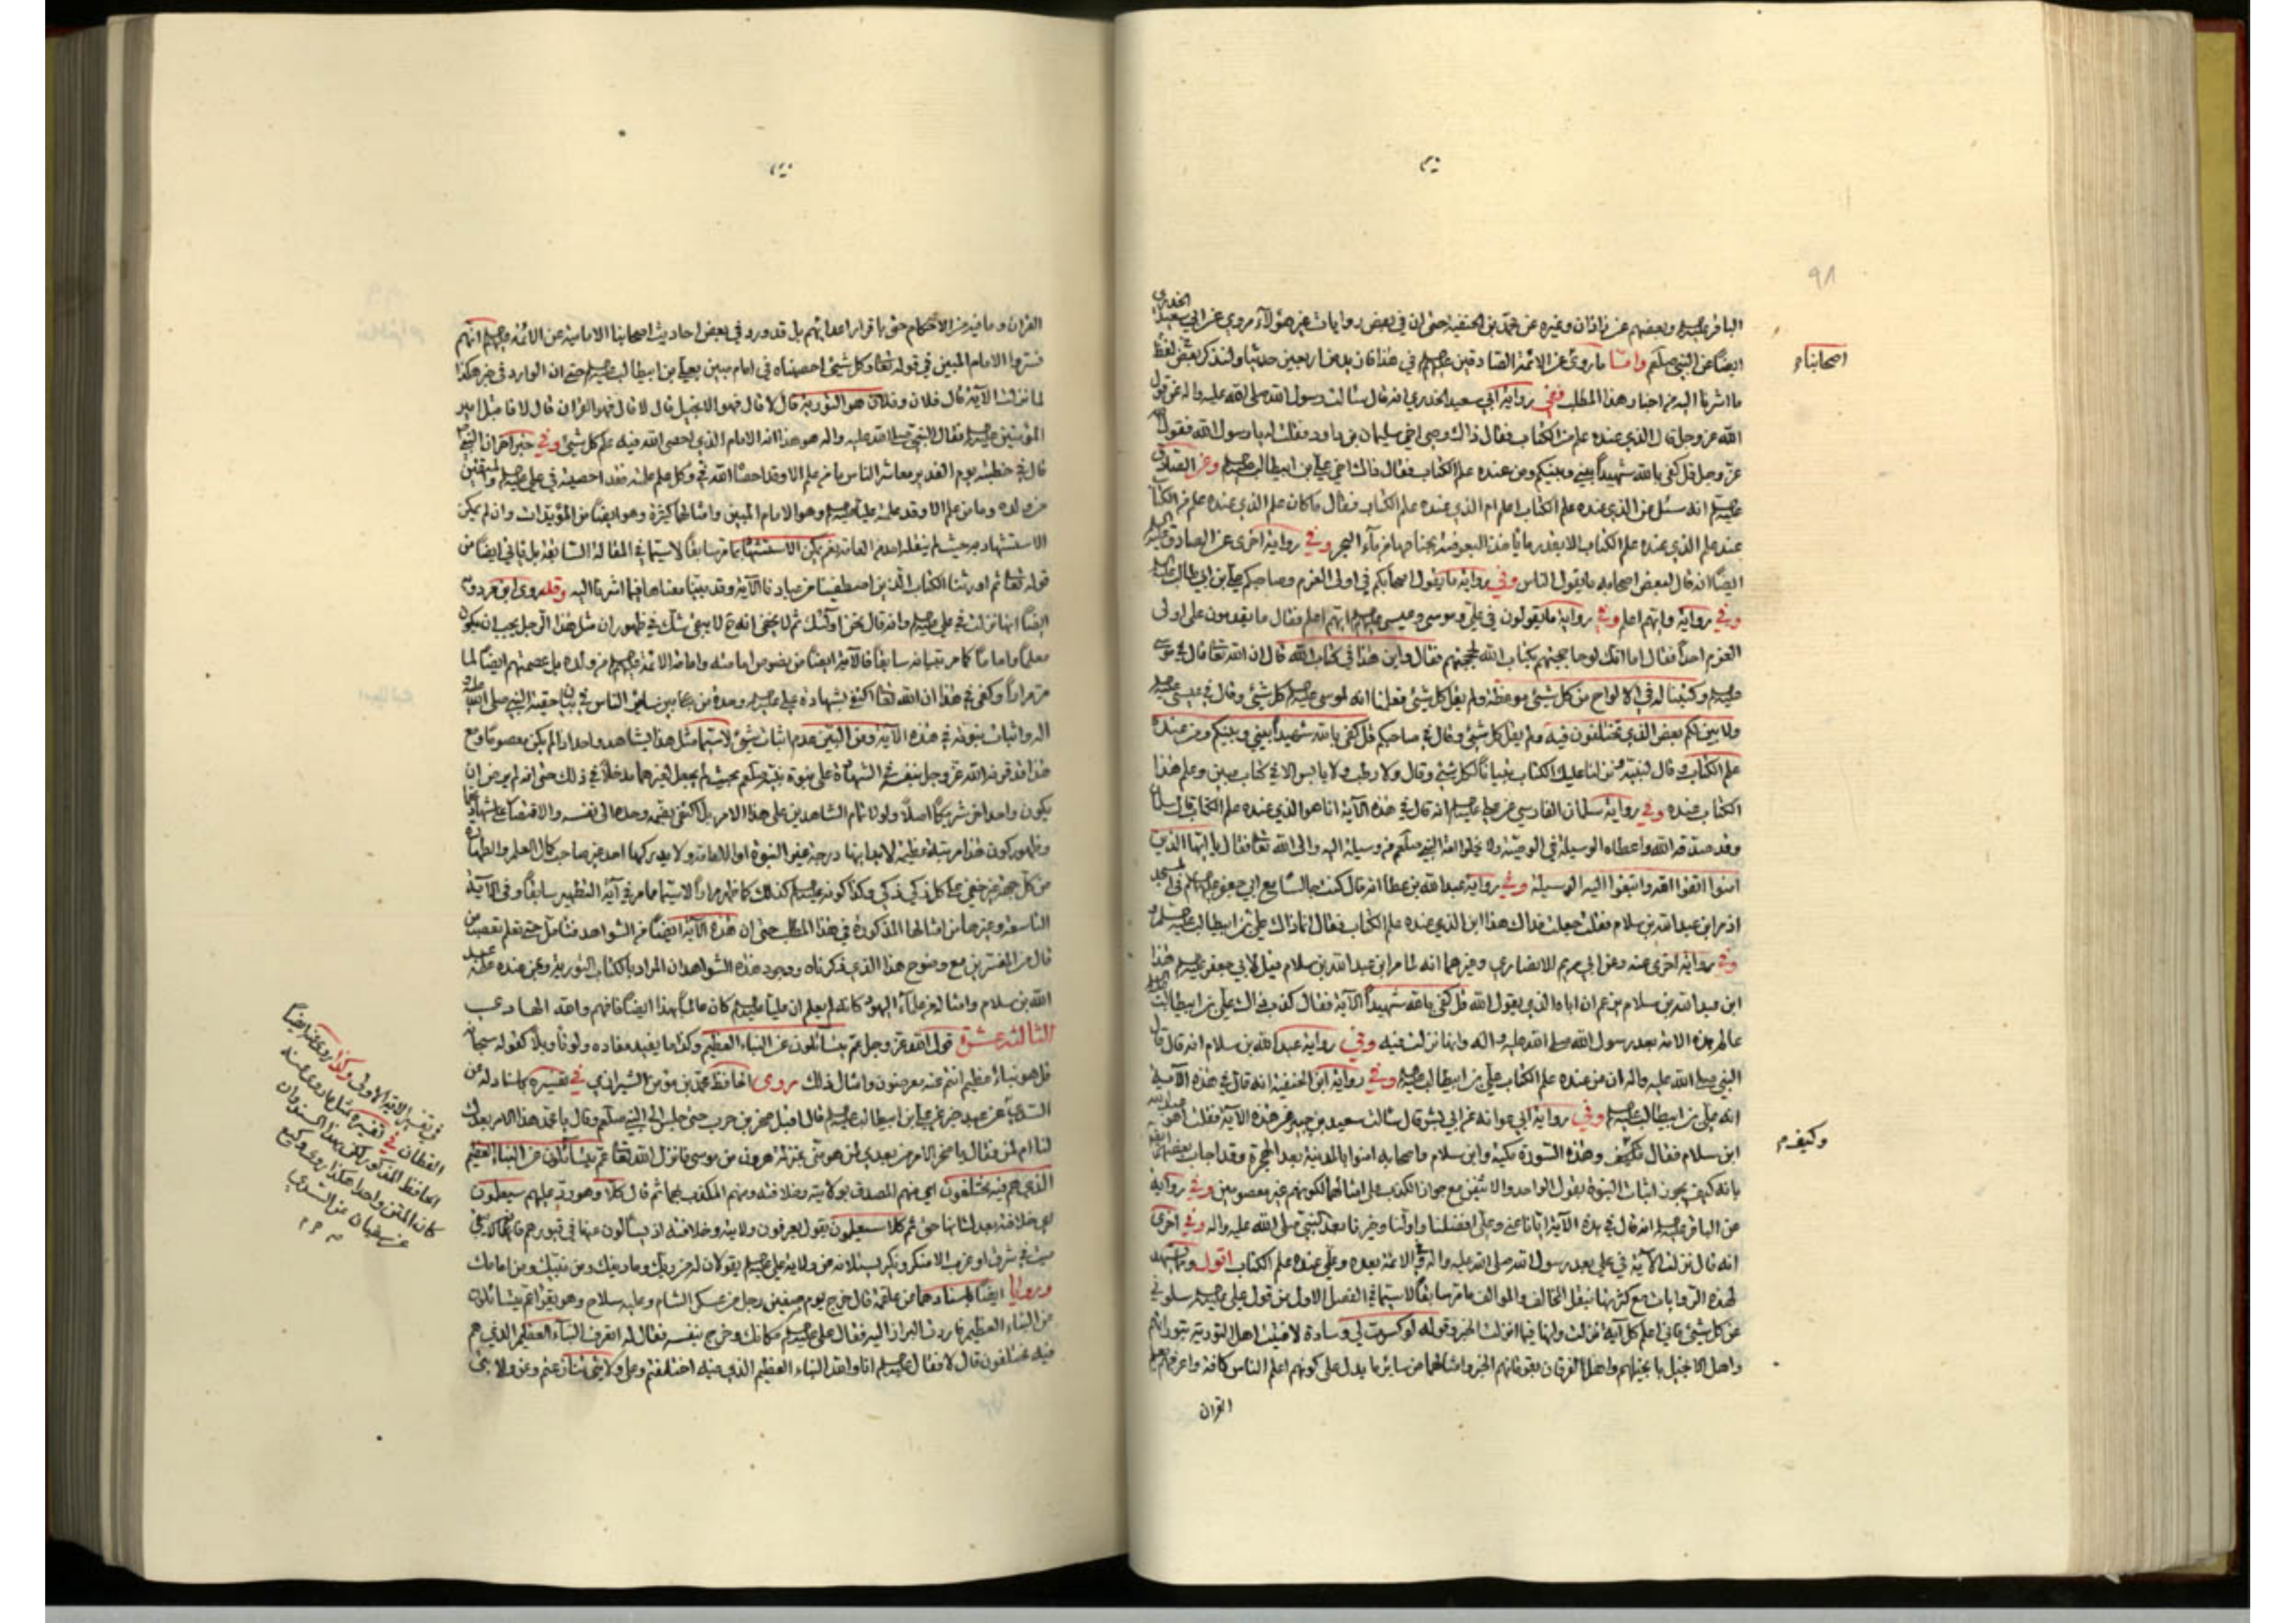 ٩٨
الباقر عليهم وبعضهم عن زاذان وغيره عن محمد بن الحنفية حتى ان في بعض روايات غير هؤلاء مروي عن ابي سعيد الخدري
ايضا عن النبي صلعم واما ما روي عن الائمة الصادقين عليهم في هذا فازيد من اربعين حديثا ولنذكر بعض لفظ
اصحابنا م
ما اشرنا اليه من اخبار هذا المطلب ففي رواية ابي سعيد الخدري انه قال سالت رسول الله صلى الله عليه واله عن قول
الله عز وجل قال الذي عنده علم من الكتاب فقال ذاك وصي اخي سليمان بن داود فقلت له يا رسول الله فقول الله
عز وجل قل كفى بالله شهيدا بيني وبينكم ومن عنده علم الكتاب فقال ذاك اخي علي بن ابيطالب وعن الصادق
انه سئل عن الذي عنده علم الكتاب اعلم ام الذي عنده علم الكتاب فقال ما كان علم الذي عنده علم من الكتاب
عند علم الذي عنده علم الكتاب الا بقدر ما تاخذ البعوضة بجناحها من ماء البحر وفي رواية اخرى عن الصادق
ايضا انه قال لبعض اصحابه ما يقول الناس وفي رواية ما يقول اصحابكم في اولى العزم وصاحبكم علي بن ابي طالب
وفي رواية وايهم اعلم وفي رواية ما يقولون في علي وموسى وعيسى ايهم اعلم فقال ما يقدمون على اولى
العزم احدا فقال اما انك لو حاججتهم بكتاب الله لحججتهم فقال واين هذا في كتاب الله قال ان الله تعالى قال في موسى
وكتبنا له في الالواح من كل شيئ موعظة ولم يقل كل شيئ فعلمنا انه لم لموسى كل شيئ وقال في عيسى
ولابين لكم بعض الذي تختلفون فيه ولم يقل كل شيئ وقال في صاحبكم قل كفى بالله شهيدا بيني وبينكم ومن عنده
علم الكتاب وقال لنبيه ونزلنا عليك الكتاب تبيانا لكل شيئ وقال ولا رطب ولا يابس الا في كتاب مبين وعلم هذا
الكتاب عنده وفي رواية سلمان الفارسي عن علي انه قال في هذه الآية انا هو الذي عنده علم الكتاب قال سلمان
وقد صدقه الله واعطاه الوسيلة في الوصية ولا يخلو امة النبي صلعم من وسيلة اليه والى الله تعالى فقال يا ايها الذين
امنوا اتقوا الله وابتغوا اليه الوسيلة وفي رواية عبد الله بن عطا انه قال كنت جالسا مع ابي جعفر في المسجد
اذ مر ابن عبد الله بن سلام فقلت جعلت فداك هذا ابن الذي عنده علم الكتاب فقال انما ذاك علي بن ابيطالب
وفي رواية اخرى عنه وعن ابي مريم الانصاري وغيرهما انه لما مر ابن عبد الله بن سلام قيل لابي جعفر هذا
ابن عبد الله بن سلام بن عمران اباه الذي يقول الله قل كفى بالله شهيدا الآية فقال كذب ذاك علي بن ابيطالب
عالم هذه الامة بعد رسول الله صلى الله عليه واله وانها نزلت فيه وفي رواية عبد الله بن سلام انه قال قال
النبي صلى الله عليه واله ان من عنده علم الكتاب علي بن ابيطالب وفي رواية ابن الحنفية انه قال في هذه الآية
انه علي بن ابيطالب وفي رواية ابي عوانة عن ابي بشر قال سالت سعيد بن جبير عن هذه الآية فقلت اهو عبد الله
وكيف م
ابن سلام فقال فكيف وهذه السورة مكية وابن سلام واصحابه امنوا بالمدينة بعد الهجرة وقد اجاب بعضهم ايضا
بانه كيف يجوز اثبات النبوة بقول الواحد والاثنين مع جواز الكذب على امثالهما لكونهم غير معصومين وفي رواية
عن الباقر انه قال في هذه الآية ايانا عني وعلي افضلنا واولنا وخيرنا بعد النبي صلى الله عليه واله وفي اخرى
انه قال نزلت الآية في علي بعد رسول الله صلى الله عليه واله وفي الائمة بعده وعلي عنده علم الكتاب اقول ومما يشهد
لهذه الروايات مع كثرتها بنقل المخالف والموالف ما مر سابقا لاسيما في الفصل الاول من قول علي سلوني
عن كل شيئ فاني اعلم كل آية انزلت واينها فيما انزلت الخبر وقوله لو كسرت لي وسادة لافتيت اهل التورية بتوراتهم
واهل الانجيل بانجيلهم واهل الفرقان بفرقانهم الخبر وامثالهما من ساير ما يدل على كونهم اعلم الناس كافة واعرفهم
القران
القران وما فيه من الاحكام حتى باقرار اعدائهم بل قد ورد في بعض احاديث اصحابنا الامامية عن الائمة عليهم انهم
فسروا الامام المبين في قوله تعالى وكل شيئ احصيناه في امام مبين بعلي بن ابيطالب حتى ان الوارد في خبر هكذا
لما نزلت الآية قال فلان وفلان هو التورية قال لا قال فهو الانجيل قال لا قال فهو القران قال لا فاقبل امير
المؤمنين فقال النبي صلى الله عليه واله هو هذا انه الامام الذي احصى الله فيه علم كل شيئ وفي خبر اخر ان النبي
قال في خطبته يوم الغدير معاشر الناس ما من علم الا وقد احصاه الله في وكل علم علمته فقد احصيته في علي والمتقين
من ولده وما من علم الا وقد علمته عليا وهو الامام المبين وامثالها كثيرة وهو ايضا من المؤيدات وان لم يكن
الاستشهاد به حيث لم ينقله احد من العامة نعم يمكن الاستشهاد بما مر سابقا لاسيما في المقالة السابقة بل ياتي ايضا من
قوله تعالى ثم اورثنا الكتاب الذين اصطفينا من عبادنا الآية وقد بينا معناها فيما اشرنا اليه وقد روى ابن مردويه
ايضا انها نزلت في علي وانه قال نحن اولئك ثم لا يخفى انه لا يبقى شك في ظهور ان مثل هذا الرجل يجب ان يكون
معلما واماما كما مر تبيانه سابقا فالآية ايضا من نصوص امامته وامامة الائمة من ولده بل عصمتهم ايضا لما
مر مرارا وكفى في هذا ان الله تعالى اكتفى بشهادة علي وحده من بين ساير الناس في بيان حقية النبي صلى الله عليه
اله واثبات نبوته في هذه الآية ومن البين عدم اثبات شيئ لاسيما مثل هذا بشاهد واحد ما لم يكن معصوما ومع
هذا قد قرنه الله عز وجل بنفسه في الشهادة على نبوة نبيه صلعم بحيث لم يجعل لغيرهما مدخلا في ذلك حتى انه لم يرض ان
يكون واحد اخر شريكا اصلا ولو لاتمام الشاهدين على هذا الامر بل اكتفى بضمه وحده الى نفسه والاقتصار على شهادتهما
وظهور كون هذا مرتبة عظيمة لا تدانيها درجة غير النبوة او الامامة ولا يدركها احد غير صاحب كمال العلم والطهارة
من كل جهة غير خفي على كل ذكي زكي وكذا كونه كذلك كما ظهر مرارا لاسيما ما مر في آية التطهير سابقا وفي الآية
التاسعة وغيرها من امثالها المذكورة في هذا المطلب حتى ان هذه الآية ايضا من الشواهد فتامل حتى تعلم تعصب من
قال من المفسرين مع وضوح هذا الذي ذكرناه ووجود هذه الشواهد ان المراد بالكتاب التورية ومن عنده علمه عبد
الله بن سلام وامثاله من علماء اليهود كانه لم يعلم ان عليا كان عالما بهذا ايضا فافهم والله الهادي
الثالثة عشرة قول الله عز وجل عم يتسائلون عن النباء العظيم وكذا ما يفيد مفاده ولو تاويلا كقوله سبحانه
قل هو نباء عظيم انتم عنه معرضون وامثال ذلك روى الحافظ محمد بن مؤمن الشيرازي في تفسيره باسناده عن
السدي عن عبد خير عن علي بن ابيطالب قال اقبل صخر بن حرب حتى جلس الى النبي صلعم وقال يا محمد هذا الامر بعدك
لنا ام لمن فقال يا صخر الامر من بعدي لمن هو مني بمنزلة هرون من موسى فانزل الله تعالى عم يتسائلون عن النباء العظيم
الذي هم فيه مختلفون اي منهم المصدق بولايته وخلافته ومنهم المكذب بهما ثم قال كلا وهو رد عليهم سيعلمون
خلافته بعدك انها حق ثم كلا سيعلمون يقول يعرفون ولايته وخلافته اذ يسالون عنها في قبورهم فلا يبقى
ميت في شرق او غرب الا منكر ونكير يسئلانه عن ولاية علي يقولان له من ربك وما دينك ومن نبيك ومن امامك
ورويا ايضا باسنادهما عن علقمة قال خرج يوم صفين رجل من عسكر الشام وعليه سلاح وهو يقرأ عم يتسائلون
عن النباء العظيم فاردت البراز اليه فقال علي مكانك وخرج بنفسه فقال له اتعرف النباء العظيم الذي هم
فيه مختلفون قال لا فقال انا والله النباء العظيم الذي فيه اختلفتم وعلى ولايتي تنازعتم وعن ولايتي
في تفسير الآية الاولى وكذا روى ايضا
القطان في تفسيره مثل ما روى عنه
الحافظ المذكور لكن بهذا السند وان
كان المتن واحدا هكذا روى وكيع
عن سفيان عن السدي